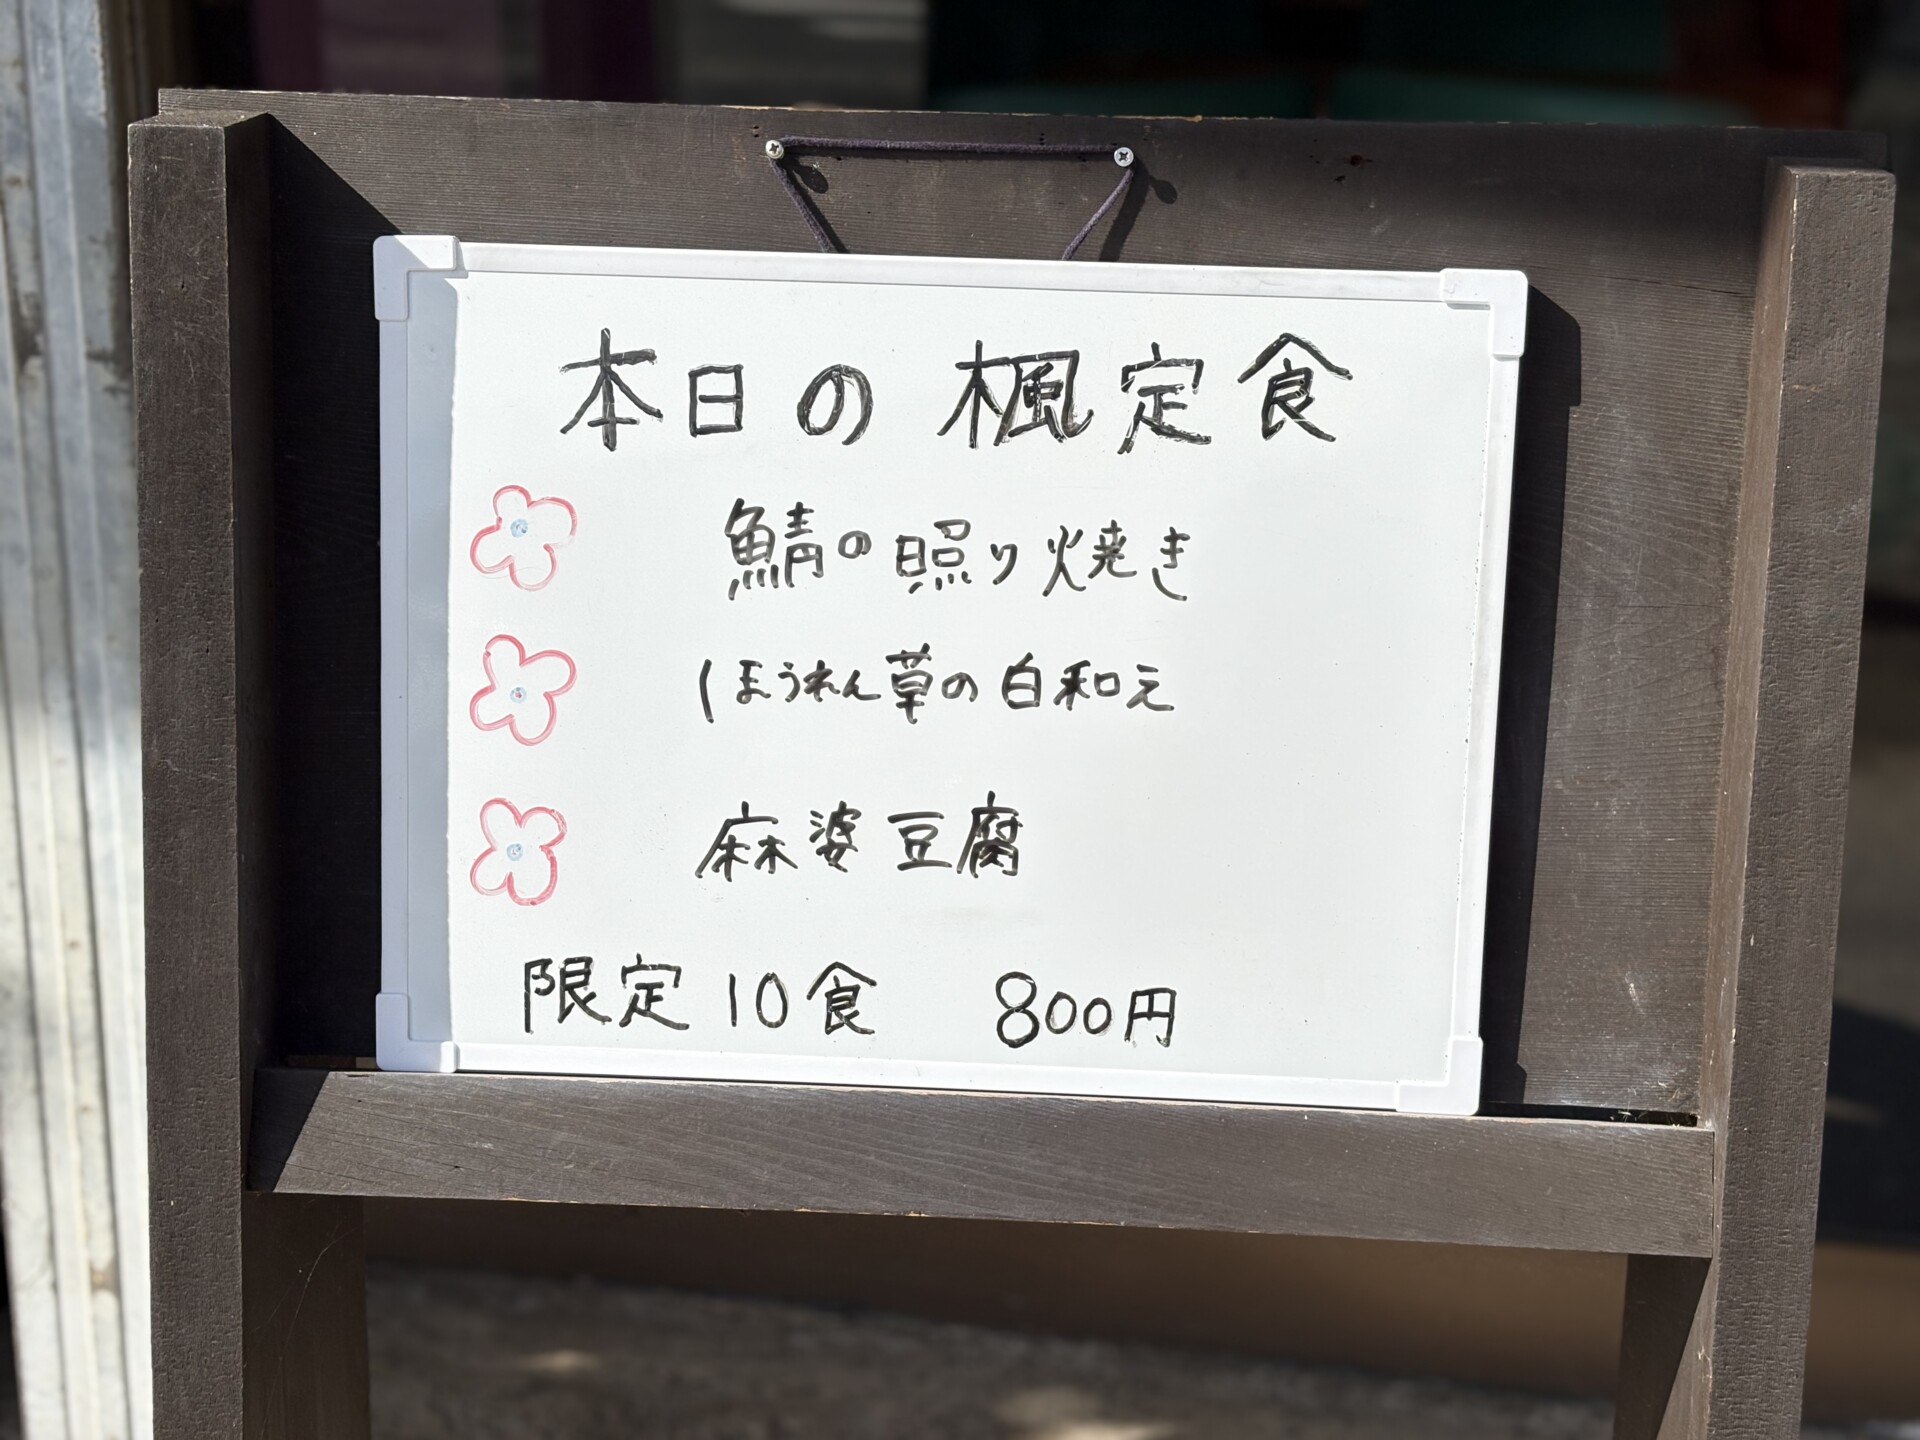 本日の楓定食
鯖の照り焼き
ほうれん草の白和え
麻婆豆腐
限定10食 800円